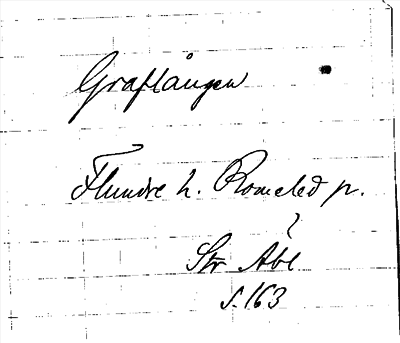 Graflången
Flundre h. Romeled p.
Str Abl
s. 163